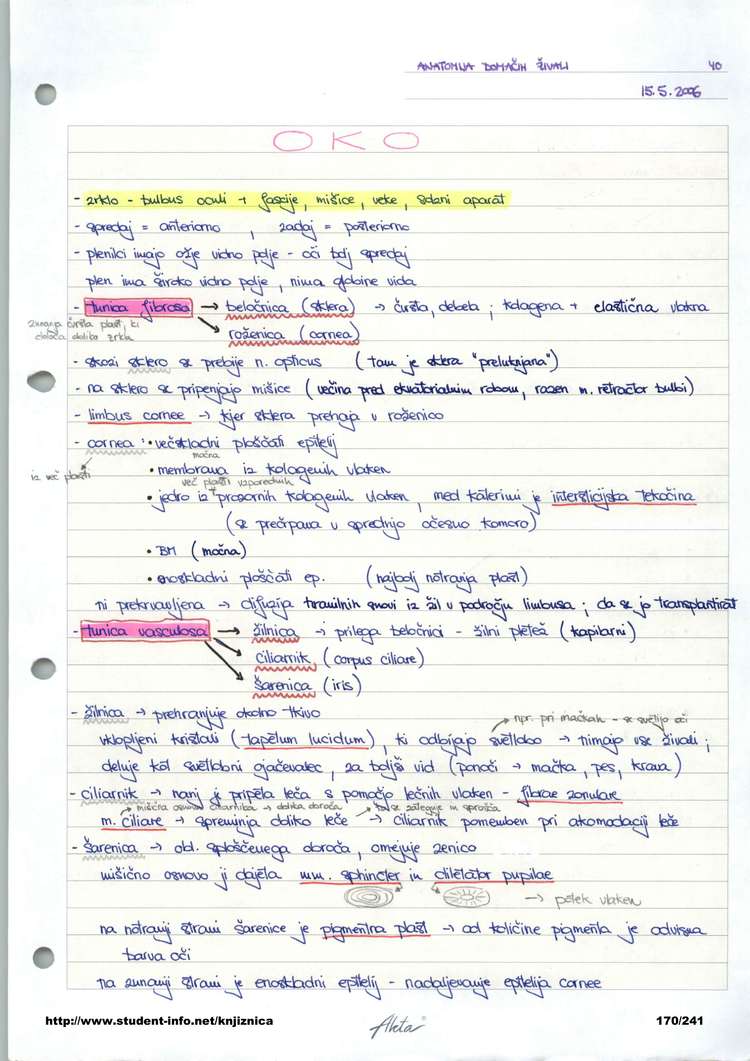 ANATOMIJA DOMAČIH ŽIVALI 40
15.5.2006
OKO
- zrklo - bulbus oculi + fascije, mišice, veke, solzni aparat
- spredaj = anteriorno, zadaj = posteriorno
- plenilci imajo ožje vidno polje - oči bolj spredaj
plen ima široko vidno polje, nima globine vida
- tunica fibrosa → beločnica (sklera) → čvrsta, debela; kolagena + elastična vlakna
zunanja čvrsta plast, ki
določa obliko zrkla
roženica (cornea)
- skozi sklero se prebije n. opticus (tam je sklera "preluknjana")
- na sklero se pripenjajo mišice (večina pred ekvatorialnim robom, razen m. retractor bulbi)
- limbus cornee → kjer sklera prehaja v roženico
- cornea: • večskladni ploščati epitelij
iz več plasti
močna
• membrana iz kolagenih vlaken
več plasti vzporednih
• jedro iz prozornih kolagenih vlaken, med katerimi je intersticijska tekočina
(se prečrpava v sprednjo očesno komoro)
• BM (močna)
• enoskladni ploščati ep. (najbolj notranja plast)
ni prekrvavljena → difuzija hranilnih snovi iz žil v področju limbusa; da se jo transplantirat
- tunica vasculosa → žilnica → prilega beločnici - žilni pletež (kapilarni)
ciliarnik (corpus ciliare)
šarenica (iris)
- žilnica → prehranjuje okolno tkivo
npr. pri mačkah - se svetijo oči
vklopljeni kristali (tapetum lucidum), ki odbijajo svetlobo → nimajo vse živali;
deluje kot svetlobni ojačevalec, za boljši vid (ponoči → mačka, pes, krava)
- ciliarnik → nanj je pripeta leča s pomočjo lečnih vlaken - fibrae zonulare
mišična osnova ciliarnika → oblika obroča
da se zateguje in sprošča
m. ciliare → spreminja obliko leče → ciliarnik pomemben pri akomodaciji leče
- šarenica → obl. sploščenega obroča, omejuje zenico
mišično osnovo ji dajeta mm. sphincter in dilatator pupilae
→ potek vlaken
na notranji strani šarenice je pigmentna plast → od količine pigmenta je odvisna
barva oči
na zunanji strani je enoskladni epitelij - nadaljevanje epitelija cornee
http://www.student-info.net/knjiznica
Aleta
170/241